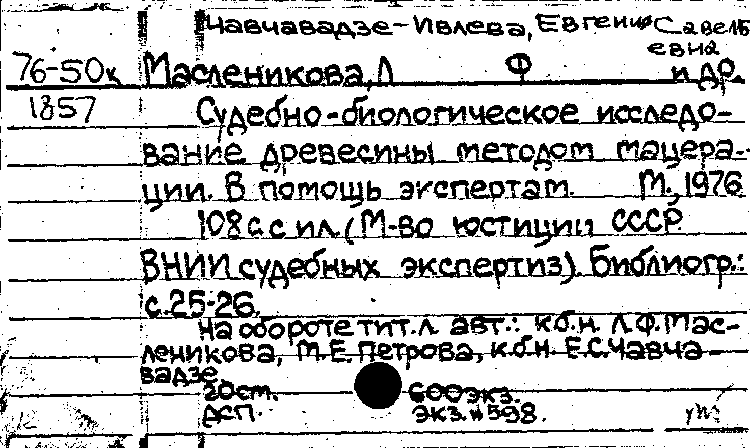 Чавчавадзе-Ивлева, Евгения Савель
евна
76-50к Масленикова, Л Ф и др.
1857 Судебно-биологическое исследо-
вание древесины методом мацера-
ции. В помощь экспертам. М., 1976
108 с. с ил. (М-во юстиции СССР
ВНИИ судебных экспертиз). Библиогр.:
с. 25-26.
На обороте тит. л. авт.: к.б.н. Л.Ф. Мас-
леникова, М.Е. Петрова, к.б.н. Е.С. Чавча-
вадзе
20 ст. 600 экз.
ДСП. экз. № 598.